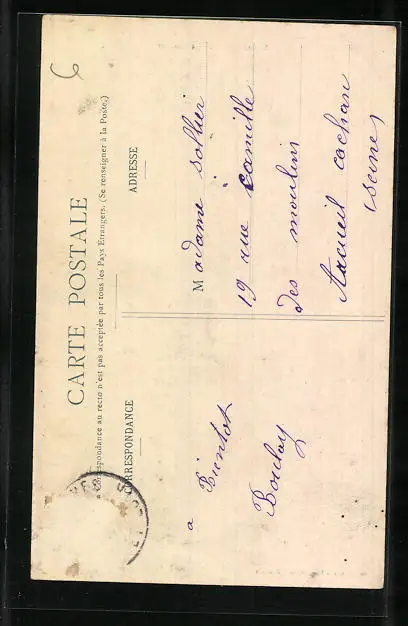 CARTE POSTALE
Correspondance au recto n'est pas acceptée par tous les Pays Etrangers. (Se renseigner à la Poste.)
CORRESPONDANCE
ADRESSE
a
Bientot
Boulay
Madame Sollier
19 rue Camille
des moulins
Arcueil cachan
(Seine)